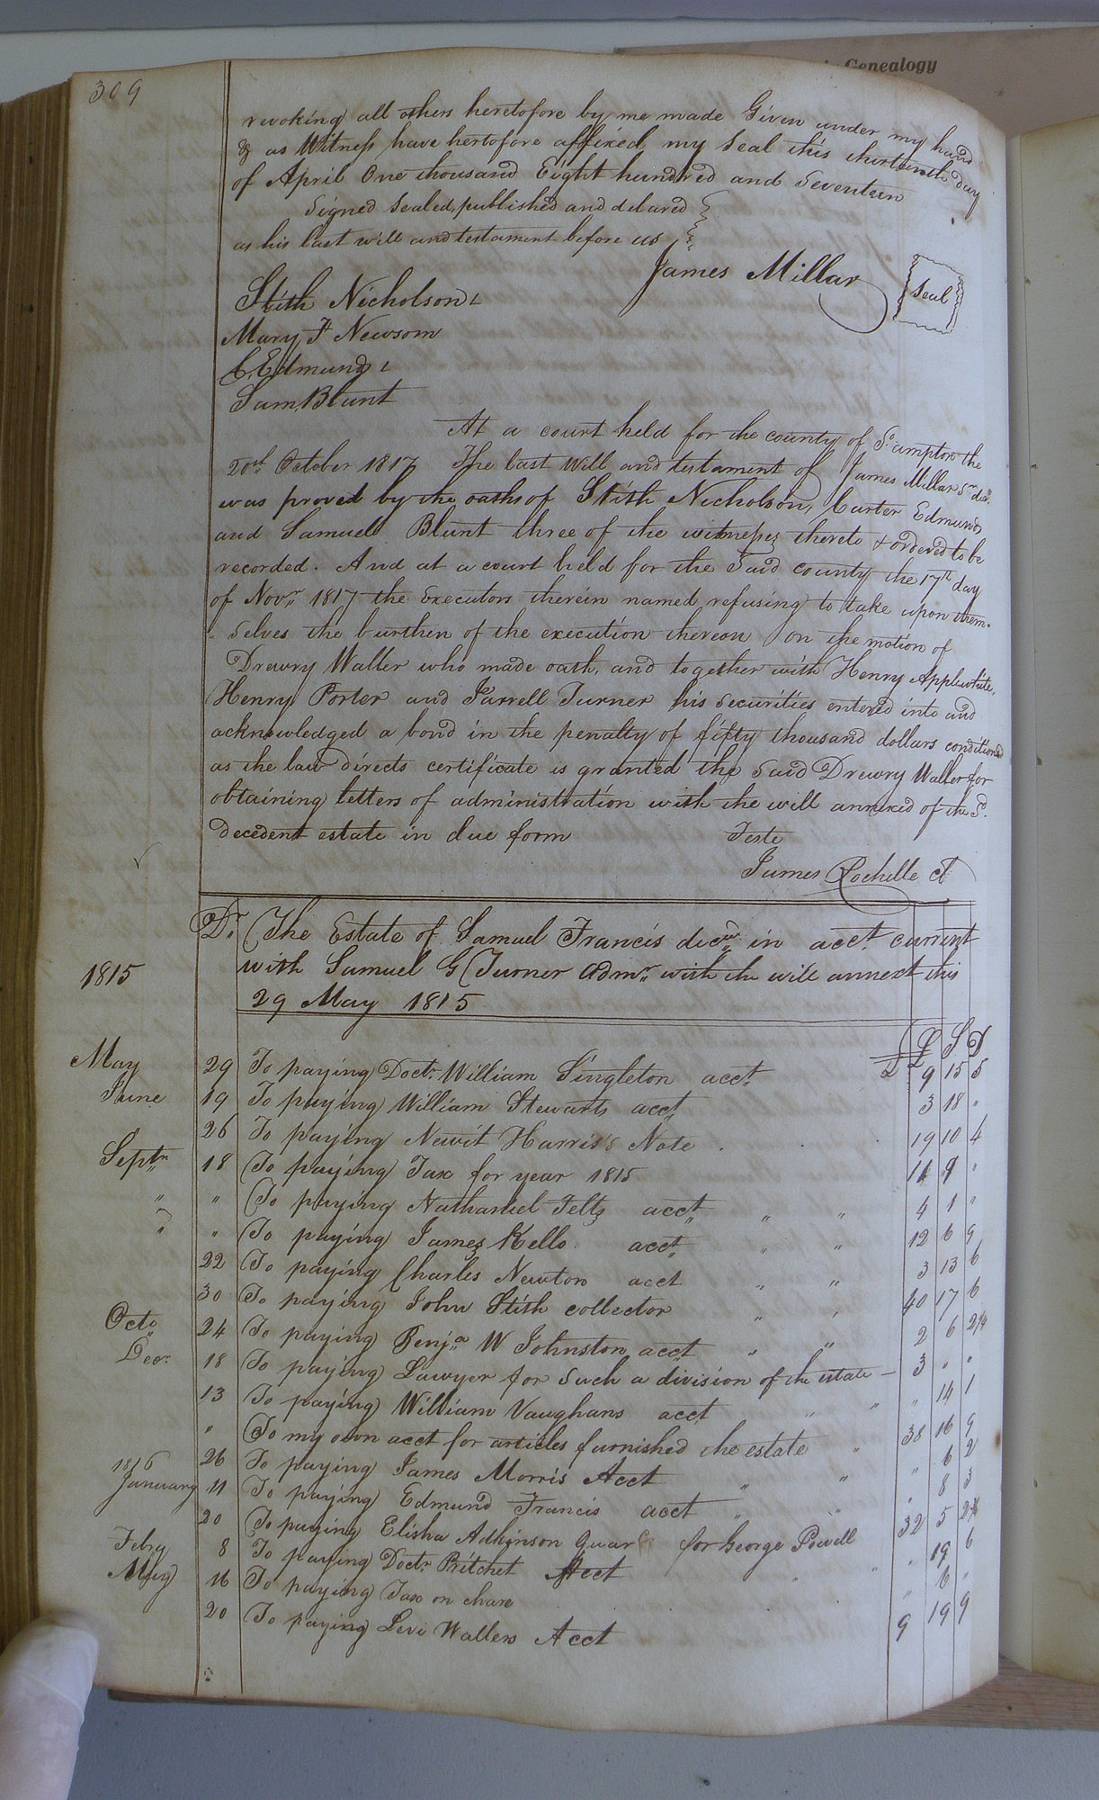 Genealogy
309
revoking all others heretofore by me made Given under my hand
& as Witness have hertofore affixed my Seal this thirteenth day
of April One thousand Eight hundred and Seventeen
Signed Sealed, published and delared
as his last will and testament before us
James Millar
Seal
Stith Nicholson
Mary F Newsom
C. Edmunds
Sam Blunt
At a court held for the county of So ampton the
20th October 1817 The last Will and testament of James Millar Sr decd
was proved by the oaths of Stith Nicholson, Carter Edmunds
and Samuel Blunt three of the witnesses thereto & ordered to be
recorded. And at a court held for the Said county the 17th day
of Novr 1817 the Executors therein named refusing to take upon them-
selves the burthen of the execution thereon On the motion of
Drewry Waller who made oath, and together with Henry Applewhite,
Henry Porter and Jarrell Turner his Securities entered into and
acknowledged a bond in the penalty of fifty thousand dollars conditioned
as the law directs certificate is granted the Said Drewry Waller for
obtaining letters of administration with the will annexed of the Sd
decedent estate in due form
Teste
James Rochelle Ct
Dr The Estate of Samuel Francis decd in acct current
1815 with Samuel G Turner Admr with the will annext this
29 May 1815
£ S D
May 29 To paying Doctr William Singleton acct 9 15 5
June 19 To paying William Stewarts acct 3 18 "
26 To paying Newit Harris's Note 19 10 4
Septr 18 To paying Tax for year 1815 11 9 "
" " To paying Nathaniel Felts acct " " 4 1 "
" " To paying James Kello acct " " 12 6 9
22 To paying Charles Newton acct " " 3 13 6
30 To paying John Stith collector " " 40 17 6
Octo 24 To paying Benja W Johnston acct " " 2 6 2¼
Decr 18 To paying Lawyer for Such a division of the estate 3 " "
13 To paying William Vaughans acct " " " 14 1
" To my own acct for articles furnished the estate " 38 16 9
26 To paying James Morris Acct " " " 6 2
1816
January 11 To paying Edmund Francis acct " " " 8 3
20 To paying Elisha Adkinson Guar for George Powell 32 5
Febry 8 To paying Doctr Pritchet Acct " " 19 6
May 16 To paying Tax on chare " 6 "
20 To paying Levi Wallers Acct 9 19 9